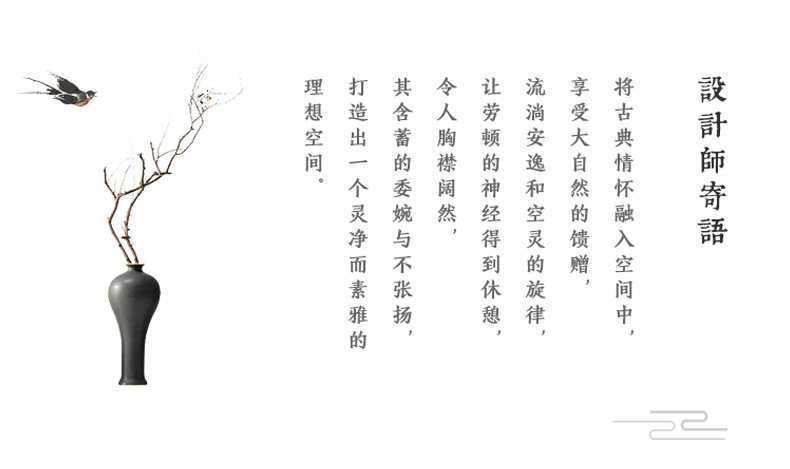 設計師寄語
将古典情怀融入空间中，
享受大自然的馈赠，
流淌安逸和空灵的旋律，
让劳顿的神经得到休憩，
令人胸襟阔然，
其含蓄的委婉与不张扬，
打造出一个灵净而素雅的
理想空间。